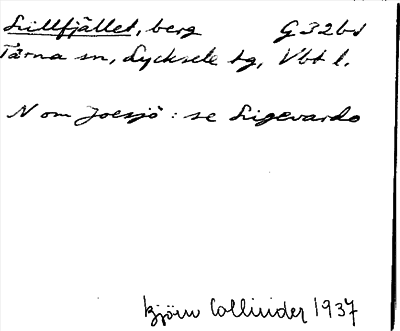 Lillfjället, berg G32bd
Tärna sn, Lycksele tg, Vbt l.
N om Joesjö: se Ligevardo
Björn Collinder 1937